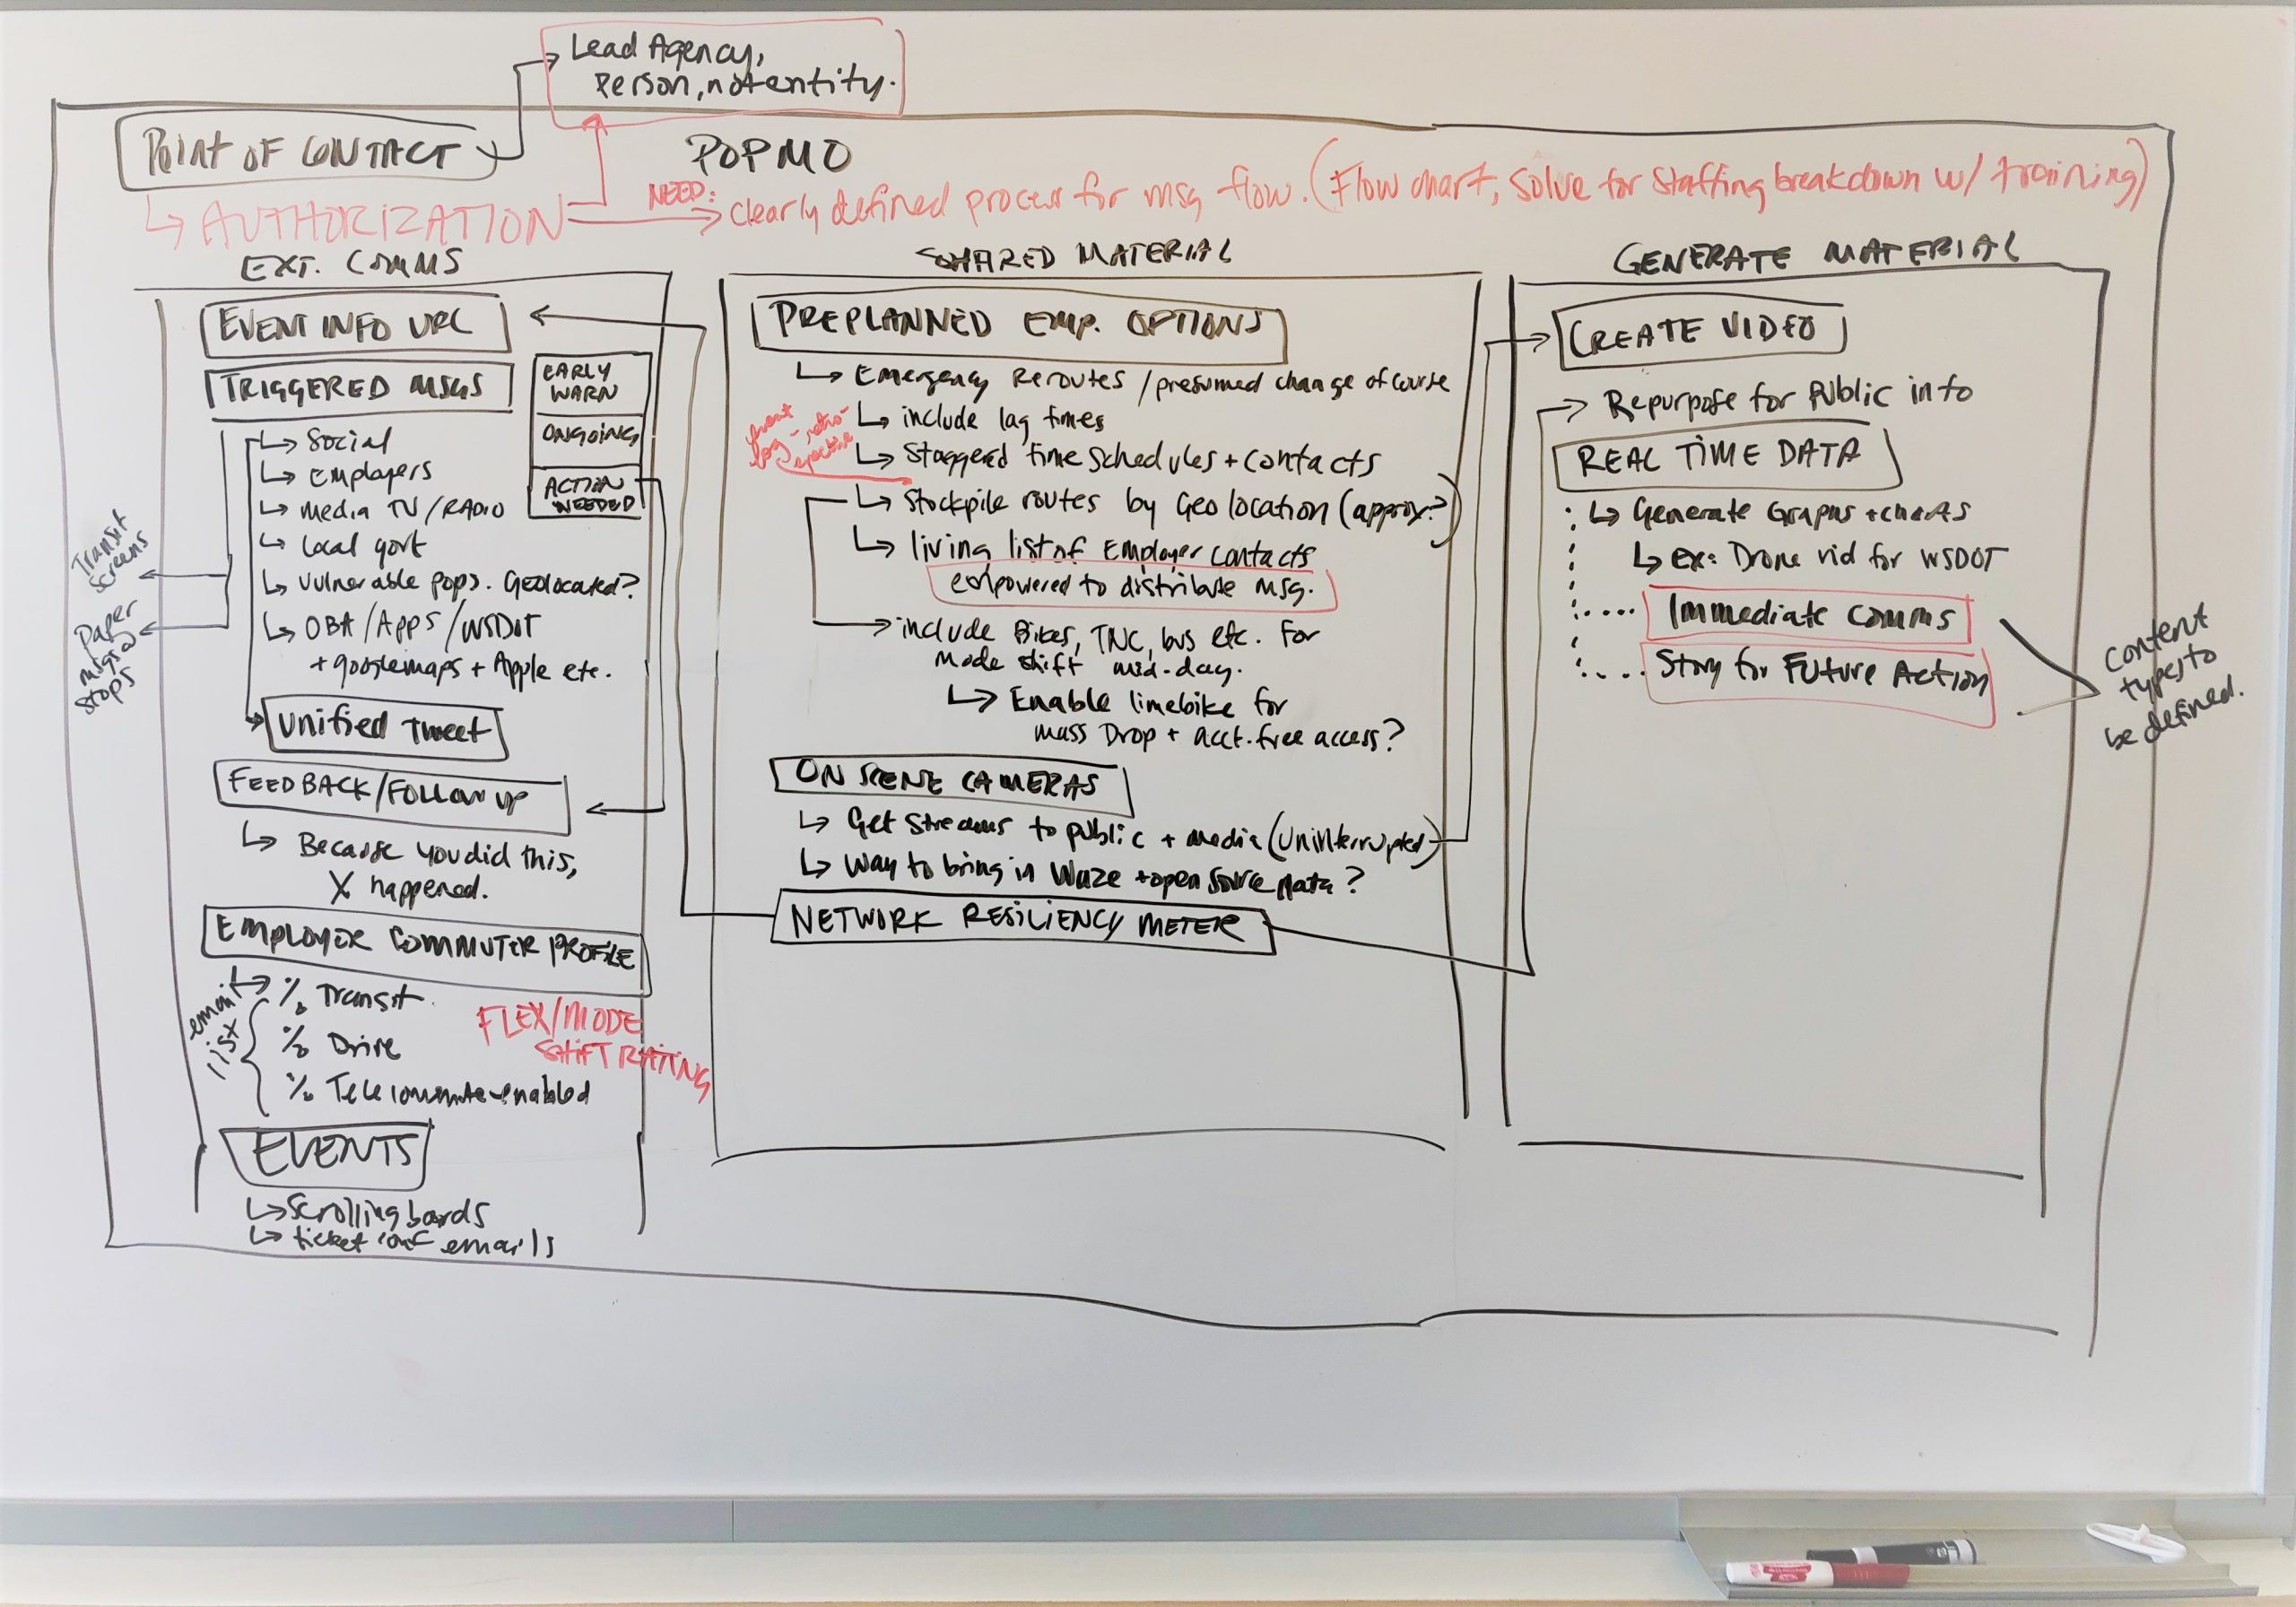 Lead Agency,
Person, not entity.
POINT OF CONTACT
POPMO
↳ AUTHORIZATION
NEED:
clearly defined process for msg flow. (Flow chart, solve for staffing breakdown w/ training)
EXT. COMMS
EVENT INFO URL
TRIGGERED MSGS
EARLY
WARN
ONGOING
ACTION
NEEDED
↳ Social
↳ Employers
↳ Media TV/RADIO
↳ Local govt
↳ Vulnerable pops. Geolocated?
↳ OBA/Apps/WSDOT
+ googlemaps + Apple etc.
Transit
Screens
Paper
msgs @
stops
Unified Tweet
FEEDBACK/FOLLOW UP
↳ Because you did this,
X happened.
EMPLOYER COMMUTER PROFILE
email
list
↳ % Transit
% Drive
% Telecommute-enabled
FLEX/MODE
SHIFT RATING
EVENTS
↳ Scrolling boards
↳ ticket conf emails
SHARED MATERIAL
PREPLANNED EMP. OPTIONS
↳ Emergency Reroutes/presumed change of course
↳ include lag times
event
log - retro-
spective
↳ Staggered time schedules + contacts
↳ Stockpile routes by Geolocation (approx?)
↳ living list of Employer contacts
empowered to distribute msg.
include Bikes, TNC, bus etc. For
Mode shift mid-day.
↳ Enable limebike for
mass Drop + acct. free access?
ON SCENE CAMERAS
↳ Get Streams to public + media (uninterrupted)
↳ Way to bring in Waze + open source data?
NETWORK RESILIENCY METER
GENERATE MATERIAL
CREATE VIDEO
Repurpose for Public info
REAL TIME DATA
↳ Generate Graphs + charts
↳ ex: Drone vid for WSDOT
Immediate Comms
Story for Future Action
Content
types to
be defined.